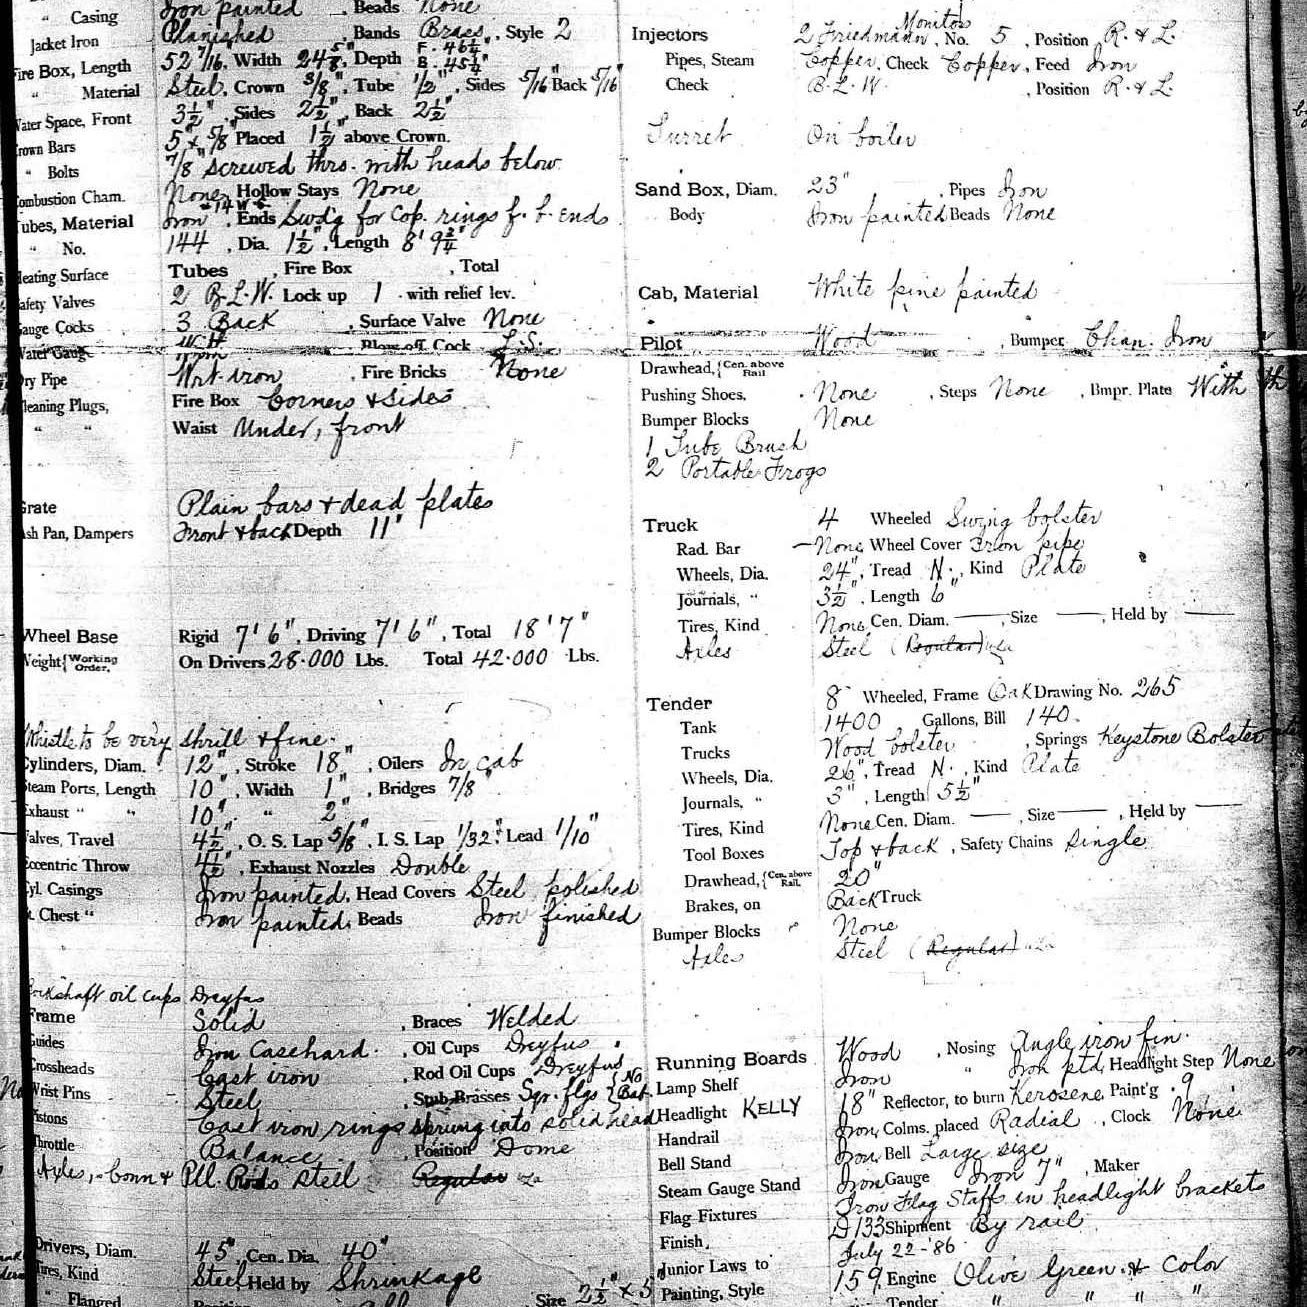 " Casing Iron painted , Beads None
Jacket Iron Planished , Bands Brass , Style 2
Fire Box, Length 52 7/16", Width 24 5/8", Depth F. 46 1/4" B. 45 1/4"
" Material Steel, Crown 3/8", Tube 1/2", Sides 5/16" Back 5/16"
Water Space, Front 3 1/2", Sides 2 1/2", Back 2 1/2"
Crown Bars 5" x 5/8" Placed 1 1/2" above Crown.
" Bolts 7/8" Screwed thro. with heads below
Combustion Cham. None, Hollow Stays None
Tubes, Material Iron 14 W.G., Ends Swd'g for Cop. rings f. b. Ends
" No. 144 , Dia. 1 1/2", Length 8' 9 3/4"
Heating Surface Tubes , Fire Box , Total
Safety Valves 2 B.L.W. Lock up 1 with relief lev.
Gauge Cocks 3 Back , Surface Valve None
Water Gauge With Blow off Cock L.S.
Dry Pipe Wrt. iron , Fire Bricks None
Cleaning Plugs, Fire Box Corners & Sides
" " Waist Under, front
Grate Plain bars & dead plates
Ash Pan, Dampers Front & back Depth 11"
Wheel Base Rigid 7' 6", Driving 7' 6", Total 18' 7"
Weight { Working Order. On Drivers 28.000 Lbs. Total 42.000 Lbs.
Whistle to be very shrill & fine.
Cylinders, Diam. 12", Stroke 18", Oilers In cab
Steam Ports, Length 10", Width 1", Bridges 7/8"
Exhaust " " 10". " 2"
Valves, Travel 4 1/2", O. S. Lap 5/8", I. S. Lap 1/32", Lead 1/10"
Eccentric Throw 4 1/2", Exhaust Nozzles Double
Cyl. Casings Iron painted, Head Covers Steel polished
St. Chest " Iron painted, Beads Iron finished
Rockshaft oil cups Dreyfus
Frame Solid , Braces Welded
Guides Iron Casehard. , Oil Cups Dreyfus
Crossheads Cast iron , Rod Oil Cups Dreyfus
Wrist Pins Steel , Stub Brasses Sqr. flgs { No Bab.
Pistons Cast iron rings sprung into solid head
Throttle Balance . , Position Dome
Axles, Conn & Pll. Rods Steel Regular
Drivers, Diam. 45", Cen. Dia. 40"
Tires, Kind Steel, Held by Shrinkage
" Flanged Size 2 1/2" x 5"
Injectors 2 Friedmann Monitor, No. 5 , Position R. & L.
Pipes, Steam Copper, Check Copper, Feed Iron
Check B.L.W. , Position R. & L.
Turret On boiler
Sand Box, Diam. 23" , Pipes Iron
Body Iron painted, Beads None
Cab, Material White pine painted
Pilot Wood , Bumper Chan. Iron
Drawhead, { Cen. above Rail
Pushing Shoes. None , Steps None , Bmpr. Plate With
Bumper Blocks None
1 Tube Brush
2 Portable Frogs
Truck 4 Wheeled Swing bolster
Rad. Bar None, Wheel Cover Iron pipe
Wheels, Dia. 24", Tread N. , Kind Plate
Journals, " 3 1/2", Length 6"
Tires, Kind None, Cen. Diam. — , Size — , Held by —
Axles Steel (Regular)
Tender 8 Wheeled, Frame Oak Drawing No. 265
Tank 1400 Gallons, Bill 140.
Trucks Wood bolster , Springs Keystone Bolster
Wheels, Dia. 26", Tread N. , Kind Plate
Journals, " 3" , Length 5 1/2"
Tires, Kind None Cen. Diam. — , Size — , Held by —
Tool Boxes Top & back , Safety Chains Single
Drawhead, { Cen. above Rail. 20"
Brakes, on Back Truck
Bumper Blocks None
Axles Steel (Regular)
Running Boards Wood , Nosing Angle iron fin.
Lamp Shelf Iron " Iron ptd. Headlight Step None
Headlight KELLY 18" Reflector, to burn Kerosene, Paint'g 9
Handrail Iron, Colms. placed Radial , Clock None
Bell Stand Iron, Bell Large size
Steam Gauge Stand Iron Gauge Iron 7" , Maker
Flag Fixtures Iron Flag Staffs in headlight brackets
Finish, D 133 Shipment By rail
Junior Laws to July 22-'86
Painting, Style 159, Engine Olive Green & Color
Tender " " " "